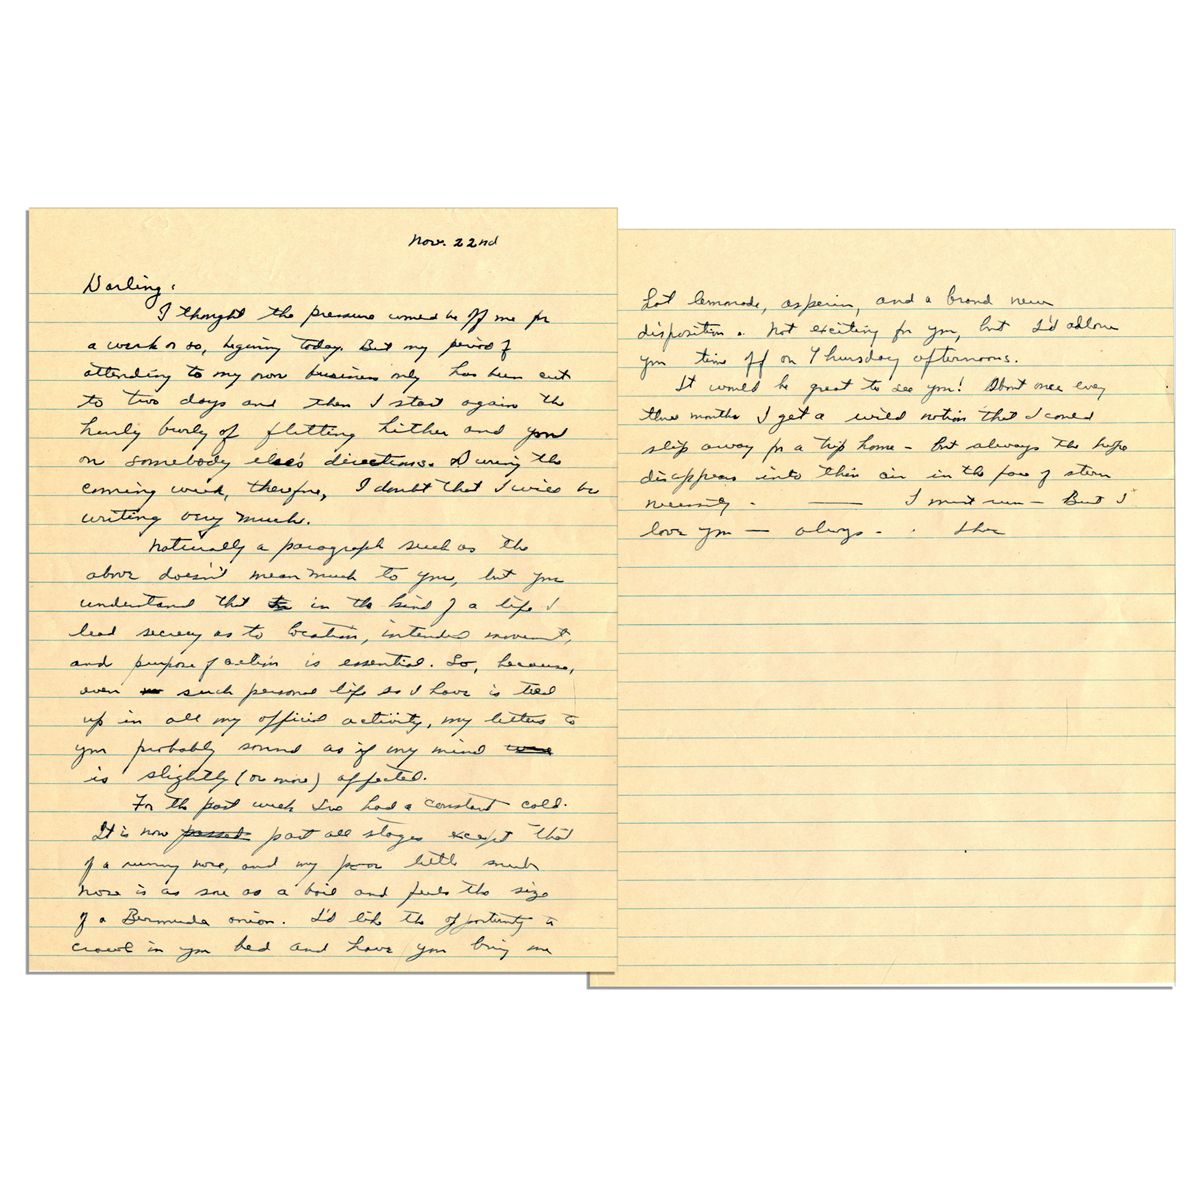 Nov. 22nd
Darling:
I thought the pressure would be off me for
a week or so, begining today. But my period of
attending to my own business only has been cut
to two days and then I start again the
hurly burly of flitting hither and yon
on somebody else's directions. During the
coming week, therefore, I doubt that I will be
writing very much.
Naturally a paragraph such as the
above doesn't mean much to you, but you
understand that in the kind of a life I
lead secrecy as to location, intended movement,
and purpose of action is essential. So, because,
even such personal life as I have is tied
up in all my official activity, my letters to
you probably sound as if my mind
is slightly (or more) affected.
For the past week I've had a constant cold.
It is now passed past all stages except that
of a runny nose, and my poor little snub
nose is as sore as a boil and feels the size
of a Bermuda onion. I'd like the opportunity to
crawl in your bed and have you bring me
hot lemonade, asperin, and a brand new
disposition. Not exciting for you, but I'd allow
you time off on Thursday afternoons.
It would be great to see you! About once every
three months I get a wild notion that I could
slip away for a trip home - but always the hope
disappears into thin air in the face of stern
necessity. — I must run — But I
love you — always. Ike